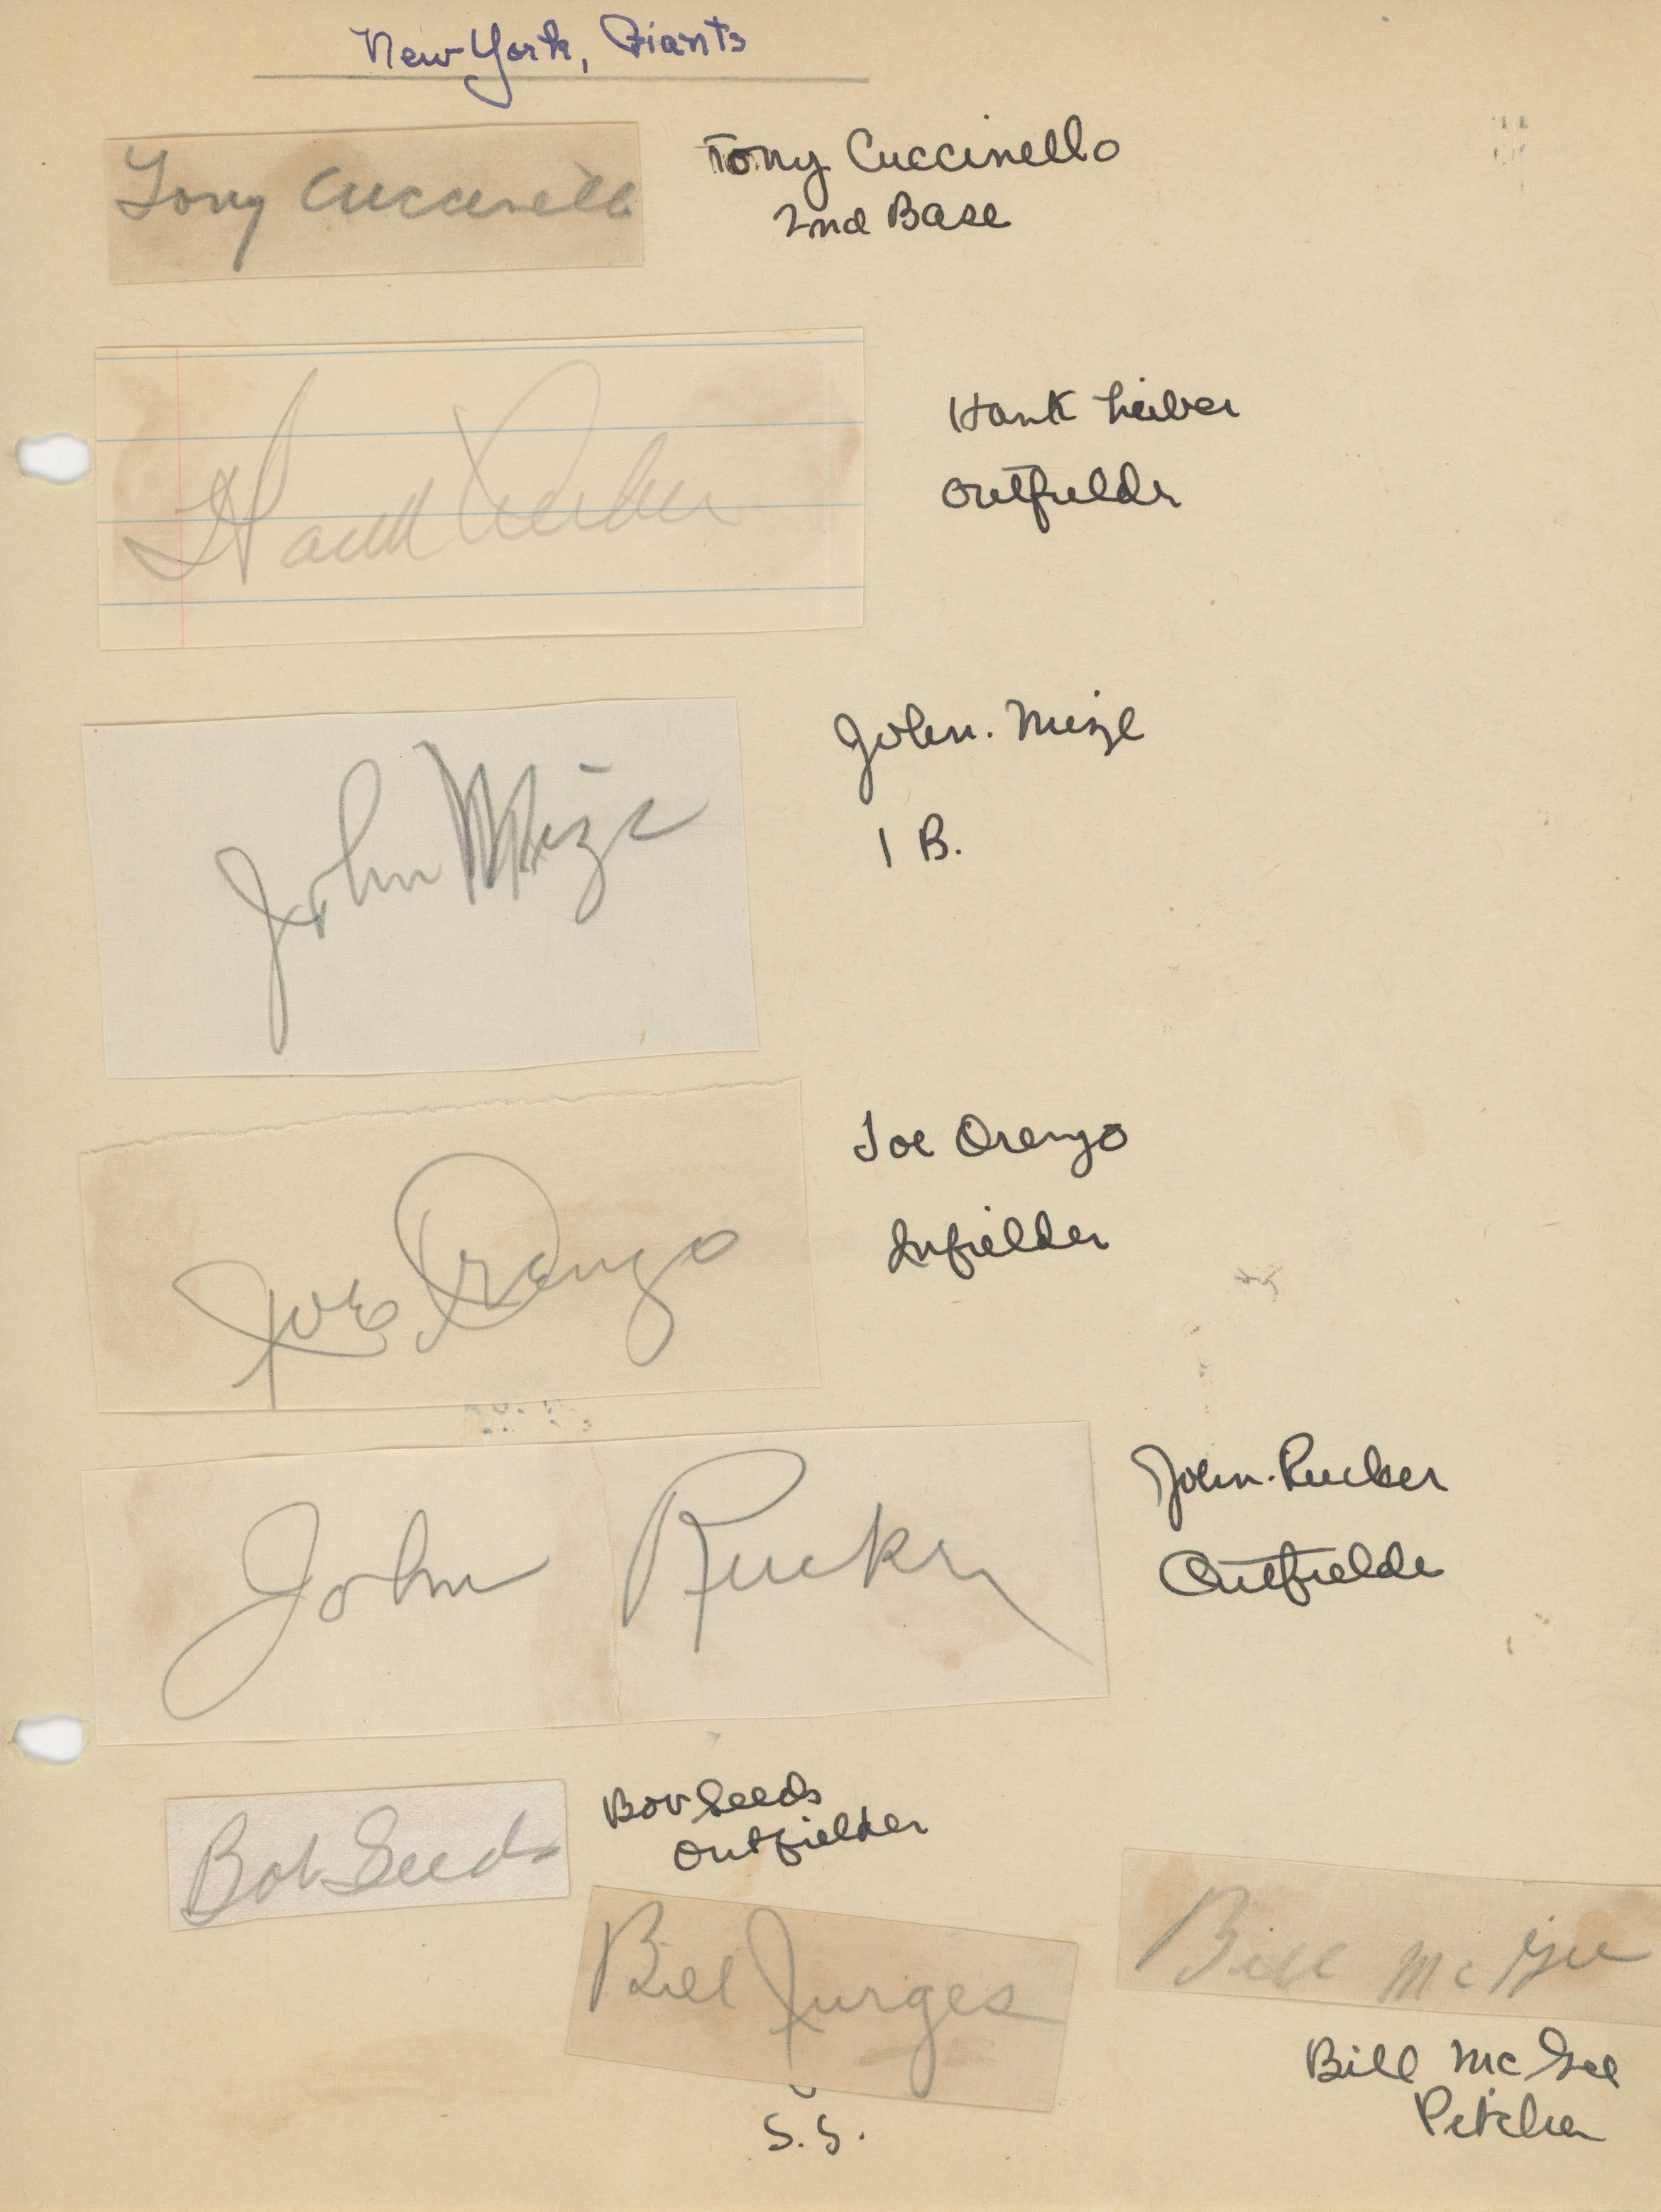 New York, Giants
Tony Cuccinello
Tony Cuccinello
2nd Base
Hank Leiber
Hank Leiber
Outfielder
John Mize
John. Mize
1 B.
Joe Orengo
Joe Orengo
Infielder
John Rucker
John. Rucker
Outfielder
Bob Seeds
Bob Seeds
Outfielder
Bill Jurges
S.S.
Bill McGee
Bill McGee
Pitcher